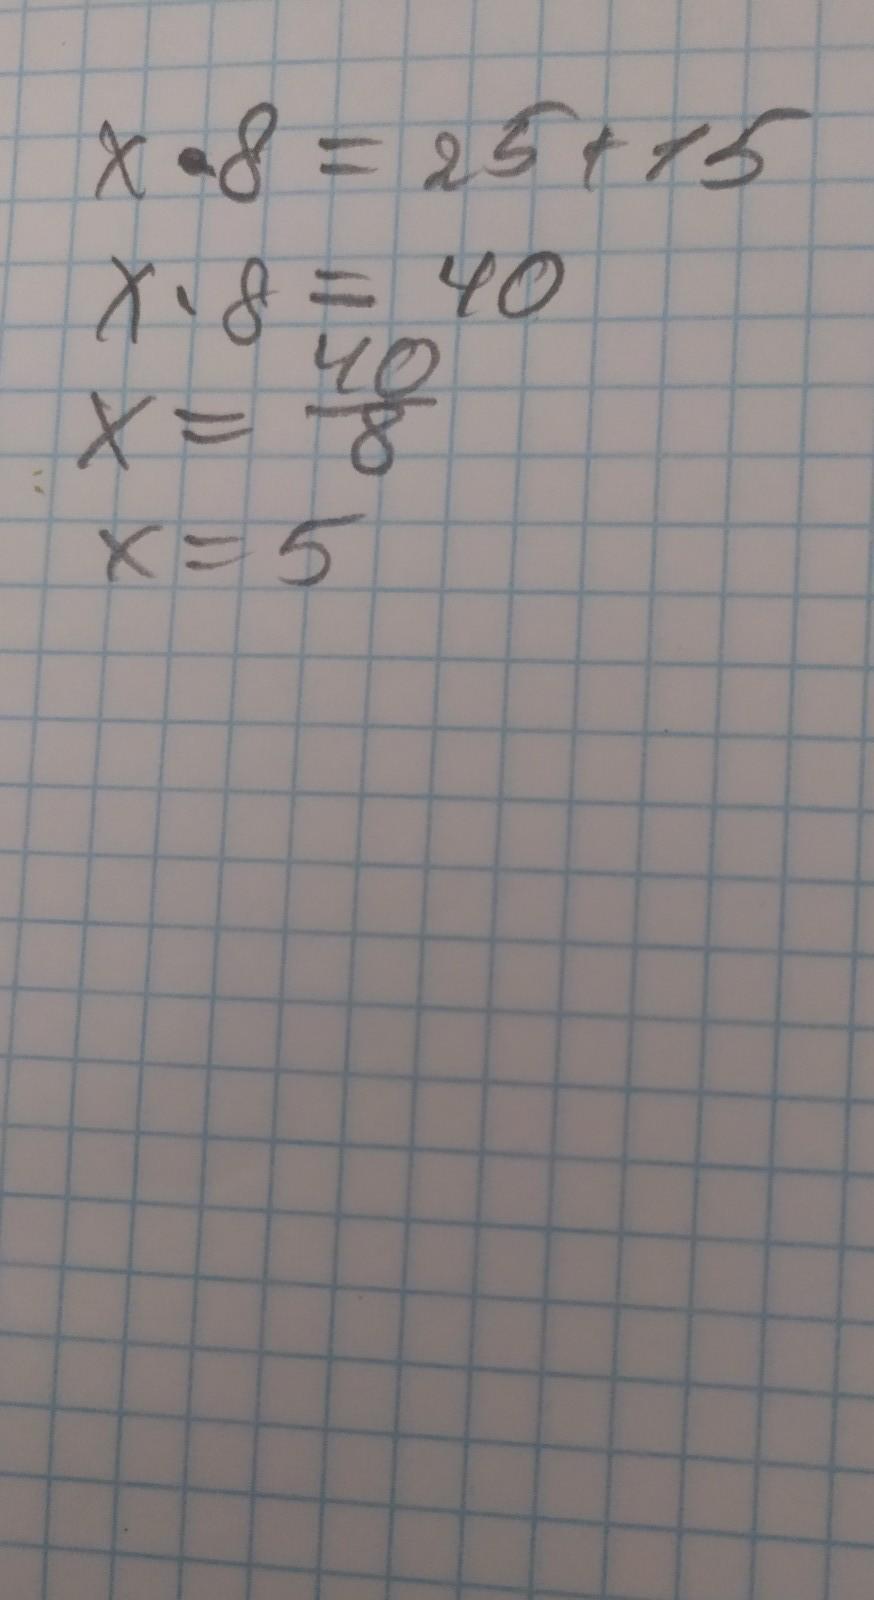 x · 8 = 25 + 15
x · 8 = 40
x = 40/8
x = 5